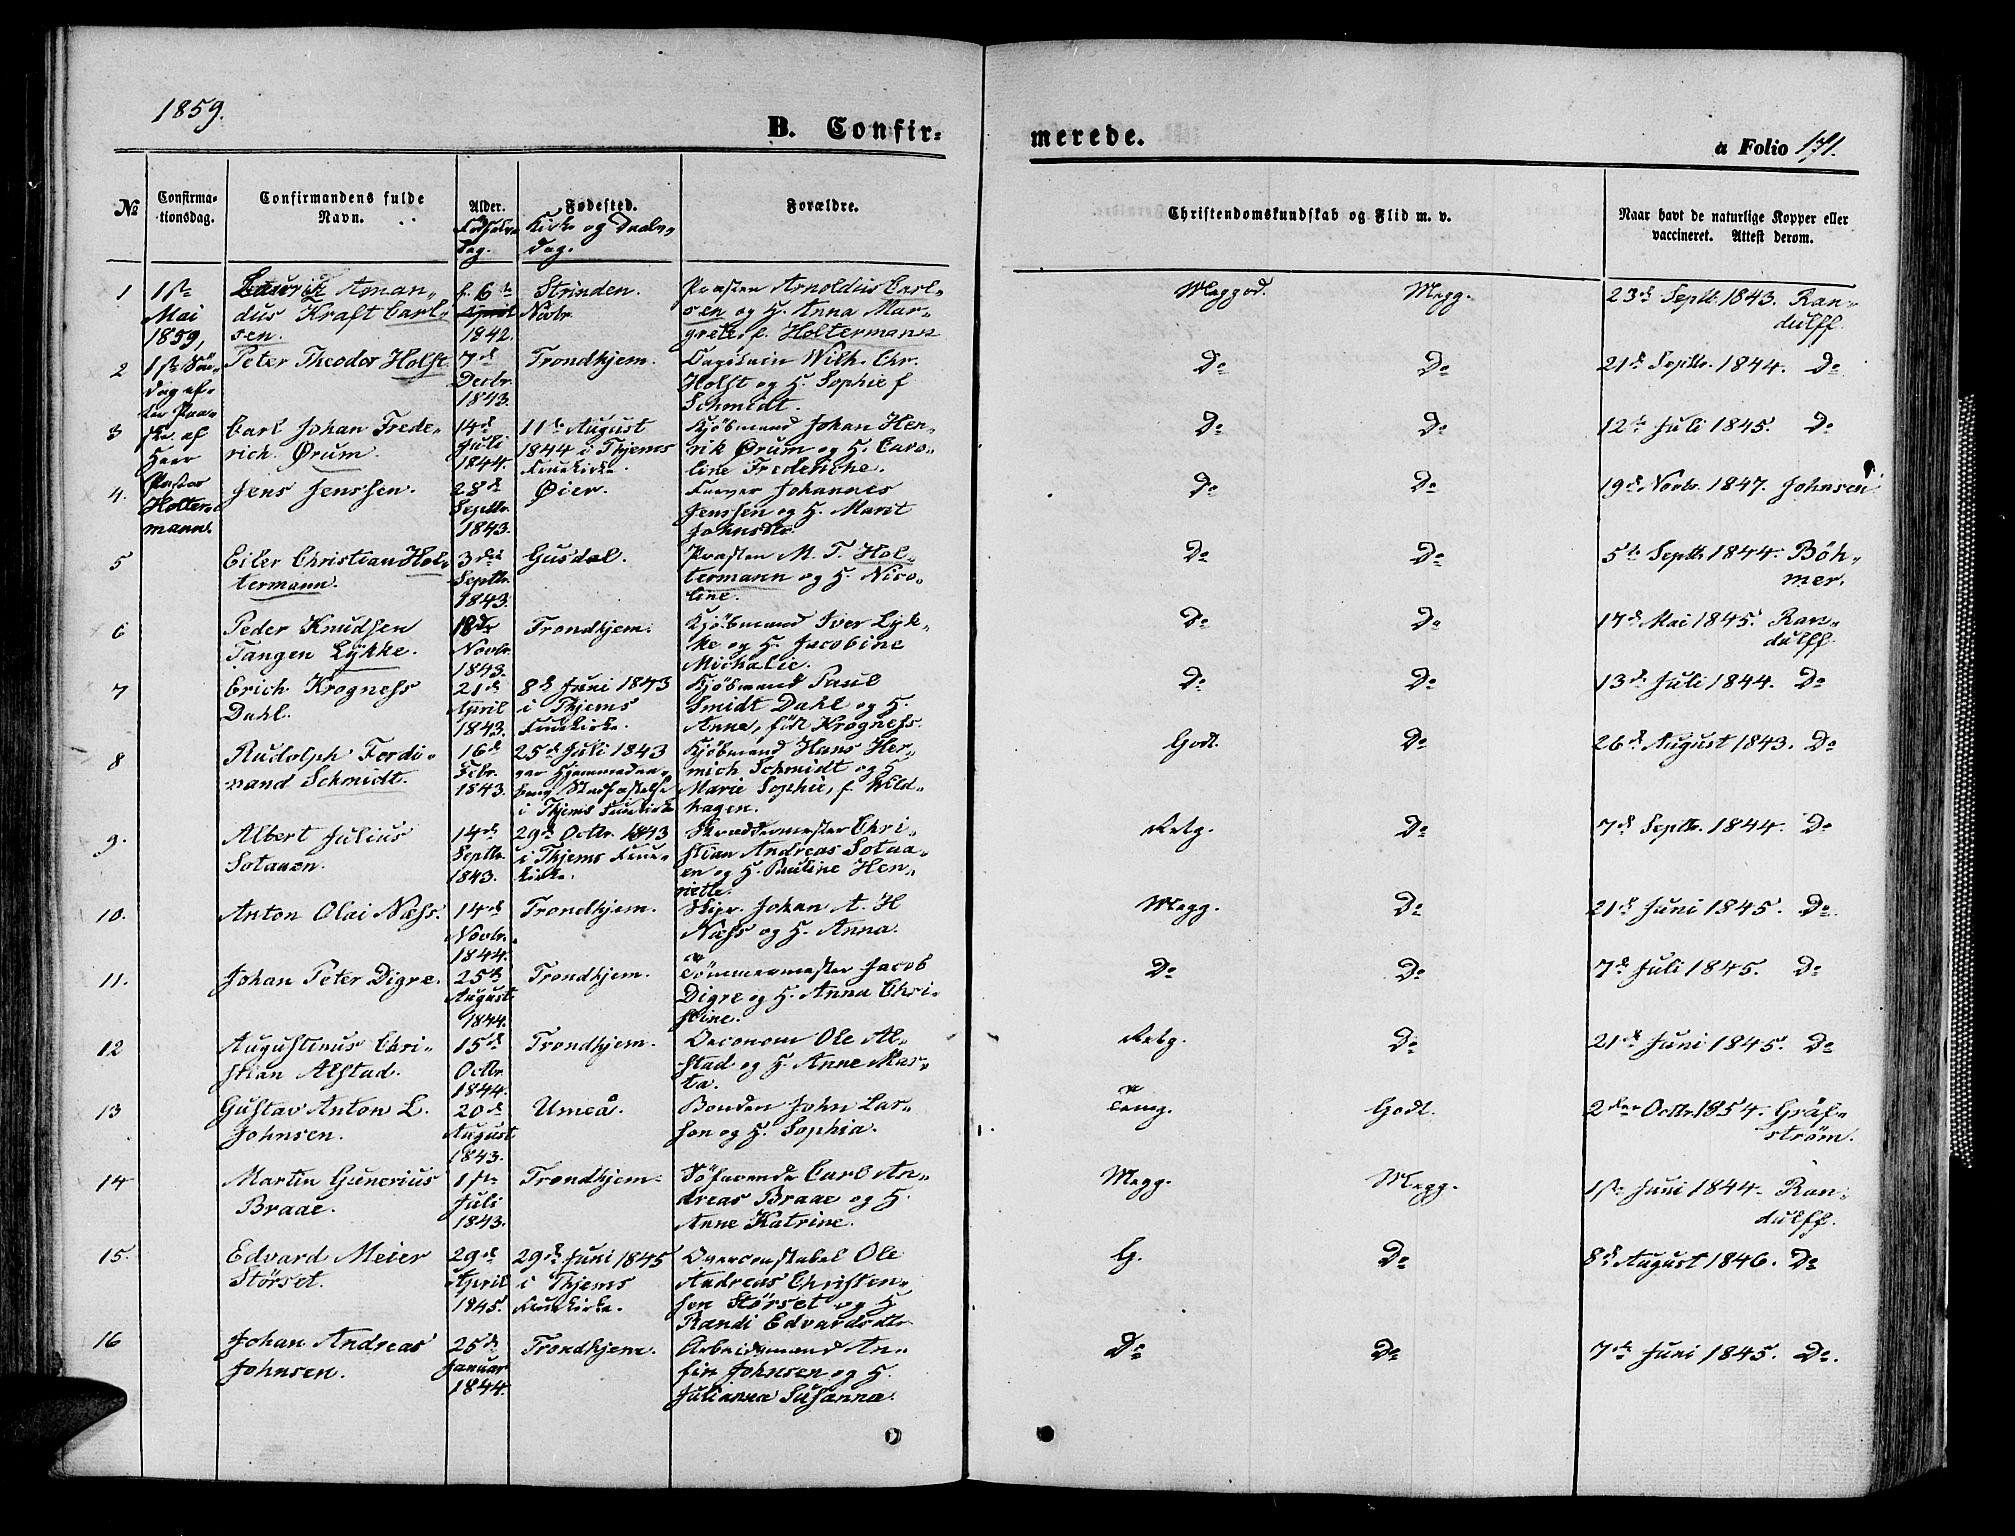 1859.
B. Confir-
merede.
a Folio 171.
№
Confirma-
tionsdag.
Confirmandens fulde
Navn.
Alder.
Fødsels-
dag.
Fødested.
Kirke og Daabs-
dag.
Forældre.
Christendomskundskab og Flid m. v.
Naar havt de naturlige Kopper eller
vaccineret. Attest derom.
1ste
Mai
1859,
1ste Søn-
dag ef-
ter Paa-
ske af
Herr
Pastor
Holter-
mann.
1
Laurits Aman-
dus Kraft Carl-
sen.
f. 6te
Novbr.
1842.
Strinden.
Præsten Arnoldus Carl-
sen og H. Anna Mar-
grete f. Holtermann
Meggod.
Megg.
23de Septbr 1843. Ran-
dulff.
2
Peter Theodor Holst
7de
Decbr.
1843.
Trondhjem.
Wilh. Chr.
Holst og H. Sophie f
Schmidt.
Do
Do
21de Septbr. 1844. Do
3
Carl Johan Frede-
rich Ørum.
14de
Juli
1844.
11te August
1844 i Thjems
Fruekirke.
Kjøbmand Johan Hen-
rik Ørum og H. Caro-
line Frederiche.
Do
Do
12te Juli 1845. Do
4.
Jens Jenssen.
28de
Septbr.
1843.
Øier.
Farver Johannes
Jenssen og H. Marit
Johnsdtr.
Do
Do
19de Novbr. 1847. Johnsen
5
Eiler Christian Hol-
termann.
3die
Septbr.
1843.
Gusdal.
Præsten M. T. Hol-
termann og H. Nico-
line.
Do
Do
5te Septbr 1844. Böh-
mer.
6
Peder Knudsen
Tangen Lykke.
18de
Novbr.
1843.
Trondhjem.
Kjøbmand Iver Lyk-
ke og H. Jacobine
Michalie.
Do
Do
17de Mai 1845. Ran-
dulff.
7
Erich Krogness
Dahl.
21de
April
1843.
8de Juni 1843
i Thjems
Fruekirke.
Kjøbmand Paul
Smidt Dahl og H.
Anna, født Krogness.
Do
Do
13de Juli 1844. Do
8
Rudolph Ferdi-
nand Schmidt.
16de
Febr.
1843.
25de Juli 1843
Hjemmedaab
Stadfæstelse
i Thjems Fruekirke
Kjøbmand Hans Her-
mich Schmidt og H
Marie Sophie, f Wild-
hagen.
Godt.
Do
26de August 1843. Do
9.
Albert Julius
Sotaaen.
14de
Septbr.
1843.
29de Octbr. 1843
i Thjems Frue-
kirke.
Skræddermester Chri-
stian Andreas Sotaa-
en og H. Pauline Hen-
riette.
Retg.
Do
7de Septbr. 1844. Do
10.
Anton Olai Næss.
14de
Novbr.
1844.
Trondhjem.
Skipr. Johan A. H
Næss og H. Anna.
Megg.
Do
21de Juni 1845. Do.
11.
Johan Peter Digre.
25de
August
1844.
Trondhjem.
Tömmermester Jacob
Digre og H. Anna Chri-
stine.
Do
Do
7de Juli 1845. Do
12
Augustinus Chri-
stian Alstad.
15de
Octbr.
1844.
Trondhjem.
Oeconom Ole Al-
stad og H. Anne Mar-
ta.
Retg.
Do
21de Juni 1845. Do
13
Gustav Anton L.
Johnsen.
20de
August
1843.
Umeå.
Bonden John Lar-
sen og H. Sophia.
Temg.
Godt.
2den Octbr 1854. Gräf-
strøm.
14
Martin Gunerius
Braae.
1ste
Juli
1843.
Trondhjem.
Søfarende Carl An-
dreas Braae og H.
Anne Katrine.
Megg.
Megg.
1ste Juni 1844. Ran-
dulff.
15.
Edvard Meier
Størset.
29de
April
1845.
29de Juni 1845
i Thjems
Fruekirke.
Overconstabel Ole
Andreas Christen-
sen Størset og H
Randi Edvardsdtr
G.
Do
8de August 1846. Do
16
Johan Andreas
Johnsen.
25de
Januar
1844.
Trondhjem.
Arbeidsmand An-
fin Johnsen og H.
Julianna Susanna.
Do
Do
7de Juni 1845. Do.